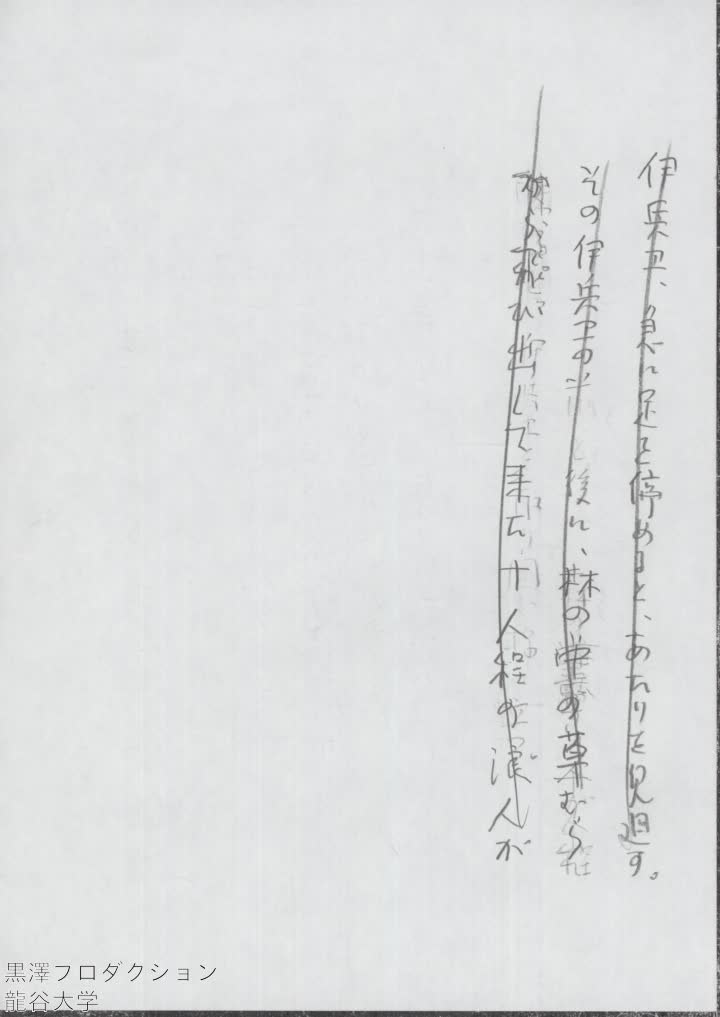 伊兵卫、急に足を停めると、あたりを見廻す。
その伊兵卫の前と後に、林の中の草むら
から飛び出して来た十人程の浪人が
黒澤フロダクション
龍谷大学